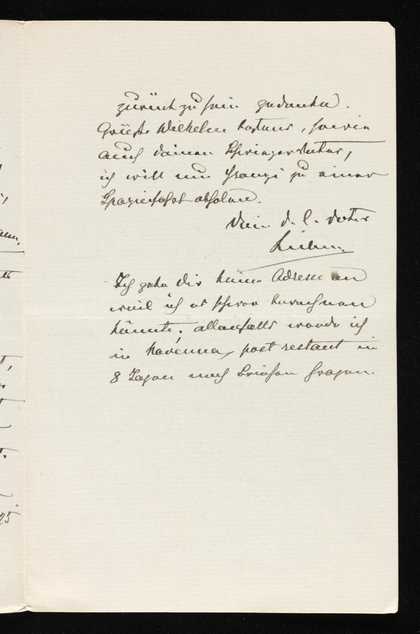 zurück zu sein gedenke.
Grüße Wilhelm bestens, sowie
auch deinen Schwiegervater,
ich will nun Franzi zu einer
Spazierfahrt abholen.
Dein d. l. Vater
Ich gebe dir keine Adresse an
weil ich es schwer
könnte. allenfalls werde ich
in Ravenna, post restant in
8 Tagen nach Briefen fragen.